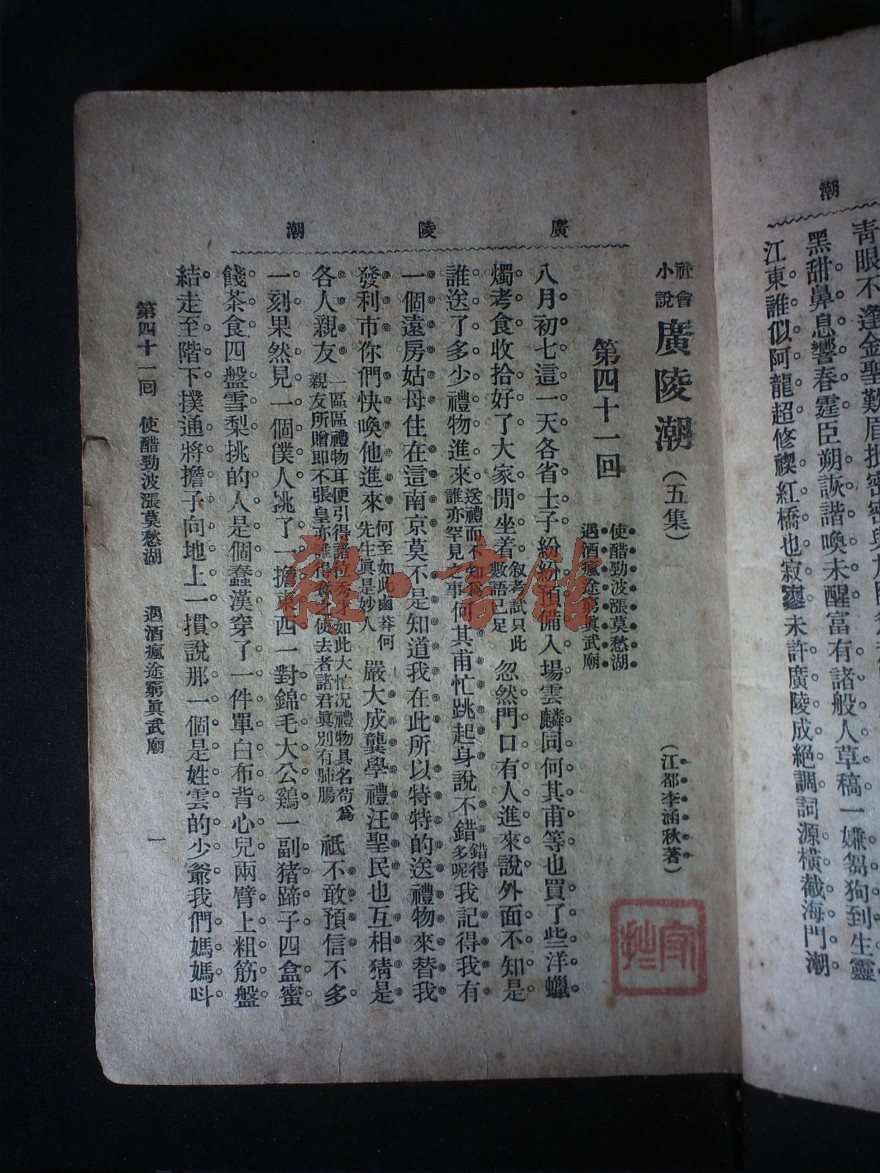 潮
青眼不逢金聖歎眉批密密與
黑甜鼻息響春霆臣朔詼諧喚未醒富有諸般人草稿一嫌芻狗到生靈
江東誰似阿龍超修禊紅橋也寂寥未許廣陵成絕調詞源橫截海門潮
廣陵潮
社會小說 廣陵潮（五集）（江都李涵秋著）
第四十一回 使醋勁波漲莫愁湖 遇酒瘋途窮眞武廟
八月初七這一天各省士子紛紛預備入場雲麟同何其甫等也買了些洋蠟
燭考食收拾好了大家閒坐着叙考試只此數語已足忽然門口有人進來說外面不知是
誰送了多少禮物進來送禮而不知爲誰亦罕見之事何其甫忙跳起身說不錯錯得多呢我記得我有
一個遠房姑母住在這南京莫不是知道我在此所以特特的送禮物來替我
發利市你們快喚他進來何至如此鹵莽何先生眞是妙人嚴大成龔學禮汪聖民也互相猜是
各人親友一區區禮物耳便引得諸位秀才如此大忙況禮物具名苟爲親友所贈即不張皇亦誰得奪之使去者諸君眞別有肺腸祇不敢預信不多
一刻果然見一個僕人挑了一擔東西一對錦毛大公鷄一副猪蹄子四盒蜜
餞茶食四盤雪梨挑的人是個蠢漢穿了一件單白布背心兒兩臂上粗筋盤
結走至階下撲通將擔子向地上一摜說那一個是姓雲的少爺我們媽媽呌
第四十一回 使醋勁波漲莫愁湖 遇酒瘋途窮眞武廟 一
雜·書館